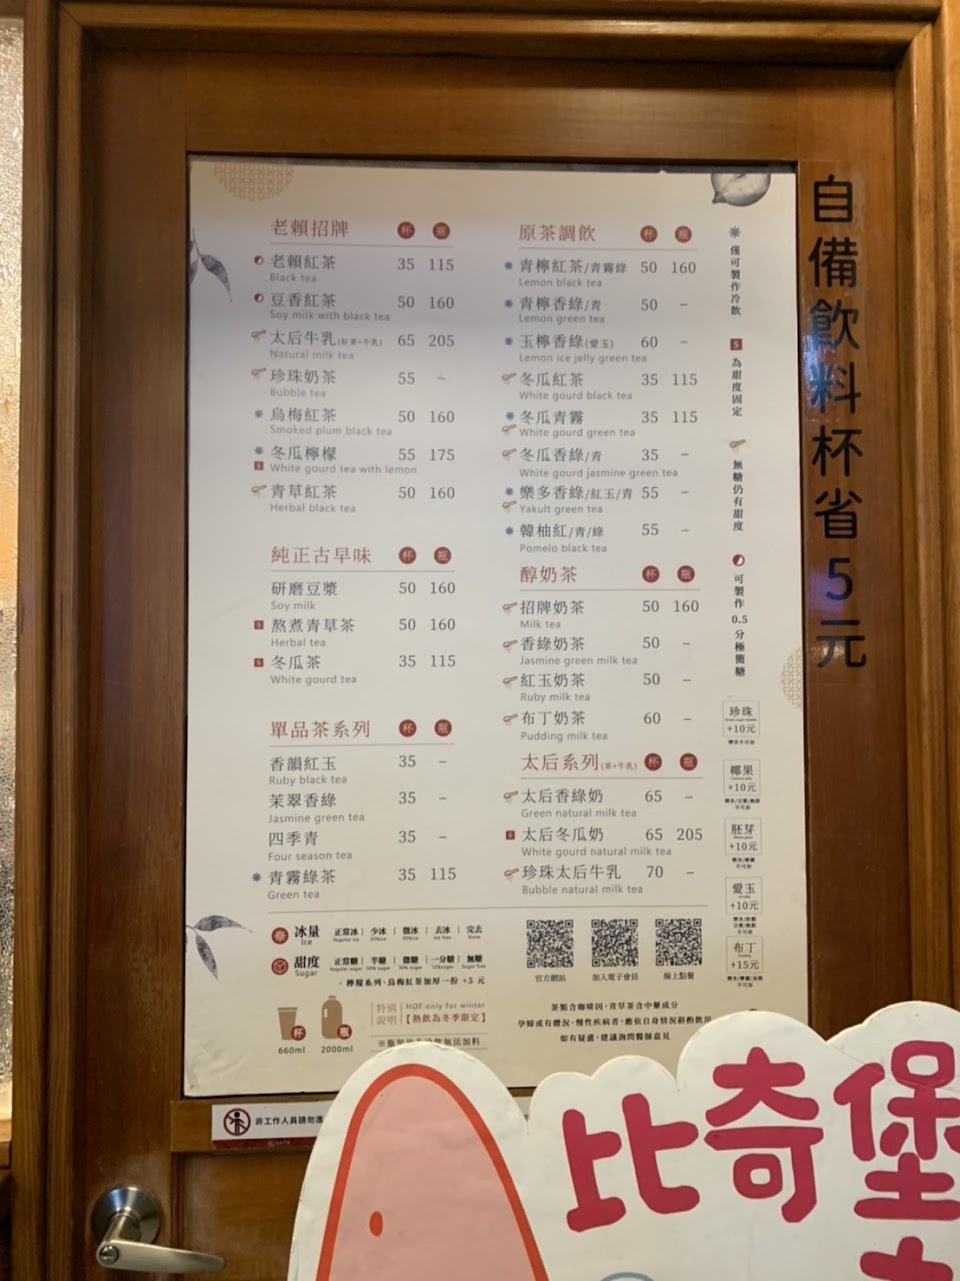 老賴招牌 杯 瓶
老賴紅茶 35 115
Black tea
豆香紅茶 50 160
Soy milk with black tea
太后牛乳(紅茶+牛乳) 65 205
Natural milk tea
珍珠奶茶 55 –
Bubble tea
烏梅紅茶 50 160
Smoked plum black tea
冬瓜檸檬 55 175
S White gourd tea with lemon
青草紅茶 50 160
Herbal black tea
純正古早味 杯 瓶
研磨豆漿 50 160
Soy milk
S 熬煮青草茶 50 160
Herbal tea
S 冬瓜茶 35 115
White gourd tea
單品茶系列 杯 瓶
香韻紅玉 35 –
Ruby black tea
茉翠香綠 35 –
Jasmine green tea
四季青 35 –
Four season tea
青霧綠茶 35 115
Green tea
原茶調飲 杯 瓶
青檸紅茶/青霧綠 50 160
Lemon black tea
青檸香綠/青 50 –
Lemon green tea
玉檸香綠(愛玉) 60 –
Lemon ice jelly green tea
冬瓜紅茶 35 115
White gourd black tea
冬瓜青霧 35 115
White gourd green tea
冬瓜香綠/青 35 –
White gourd jasmine green tea
樂多香綠/紅玉/青 55 –
Yakult green tea
韓柚紅/青/綠 55 –
Pomelo black tea
醇奶茶 杯 瓶
招牌奶茶 50 160
Milk tea
香綠奶茶 50 –
Jasmine green milk tea
紅玉奶茶 50 –
Ruby milk tea
布丁奶茶 60 –
Pudding milk tea
太后系列(茶+牛乳) 杯 瓶
太后香綠奶 65 –
Green natural milk tea
S 太后冬瓜奶 65 205
White gourd natural milk tea
珍珠太后牛乳 70 –
Bubble natural milk tea
僅可製作冷飲
S 為甜度固定
無糖仍有甜度
可製作0.5分極簡糖
珍珠
+10元
椰果
+10元
胚芽
+10元
愛玉
+10元
布丁
+15元
冰量 正常冰 | 少冰 | 微冰 | 去冰 | 完去
Ice
甜度 正常糖 | 半糖 | 微糖 | 一分糖 | 無糖
Sugar
檸檬系列、烏梅紅茶加厚一份 +5 元
杯 瓶
660ml 2000ml
特別說明
HOT only for winter
【熱飲為冬季限定】
官方網站 加入電子會員 線上點餐
茶類含咖啡因，青草茶含中藥成分
孕婦或有體況、慢性疾病者，應依自身情況斟酌飲用
如有疑慮，建議詢問醫師意見
自備飲料杯省5元
非工作人員請勿進
比奇堡